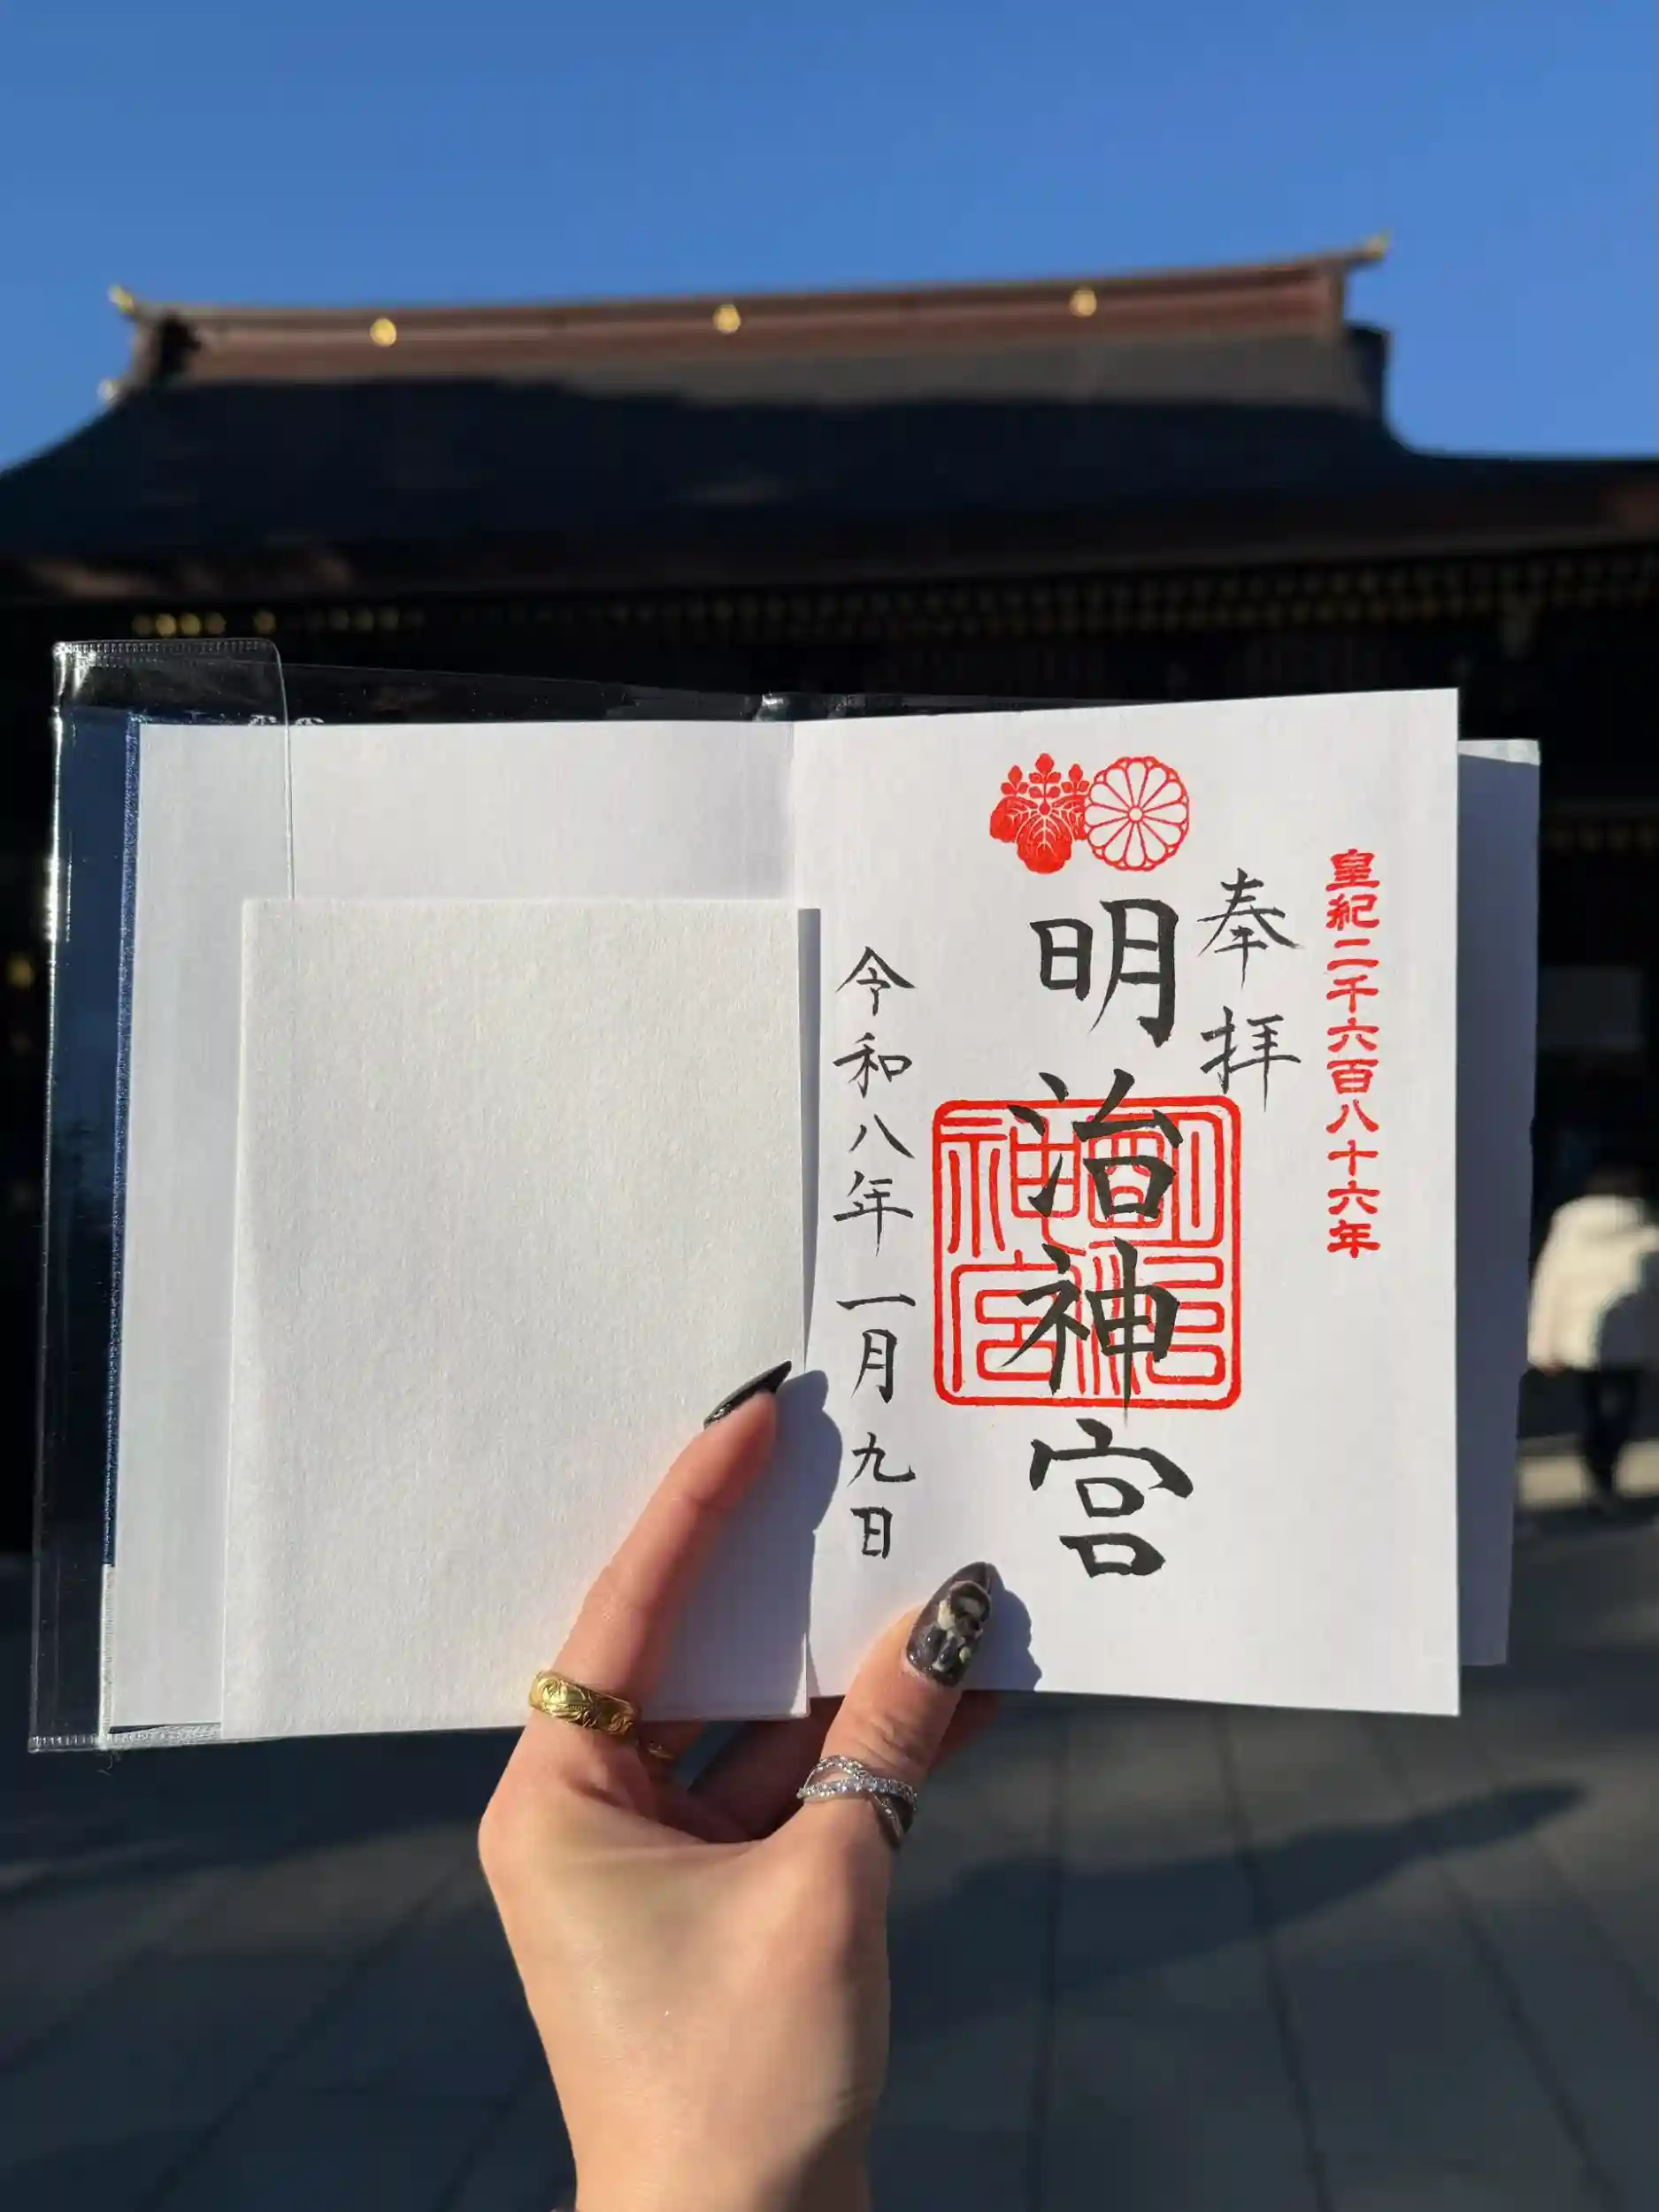 皇紀二千六百八十六年
奉拝
明治神宮
令和八年一月九日